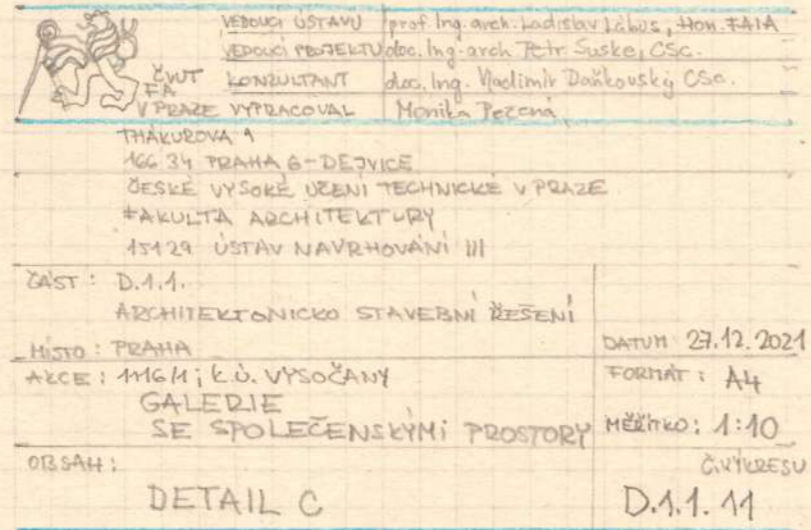 VEDOUCÍ ÚSTAVU prof. Ing. arch. Ladislav Lábus, Hon. FAIA
VEDOUCÍ PROJEKTU doc. Ing. arch. Petr Suske, CSc.
ČVUT KONZULTANT doc. Ing. Vladimír Daňkovský CSc.
FA
V PRAZE VYPRACOVAL Monika
THÁKUROVA 9
166 34 PRAHA 6-DEJVICE
ČESKÉ VYSOKÉ UČENÍ TECHNICKÉ V PRAZE
FAKULTA ARCHITEKTURY
15129 ÚSTAV NAVRHOVÁNÍ III
ČÁST: D.1.1.
ARCHITEKTONICKO STAVEBNÍ ŘEŠENÍ
MÍSTO: PRAHA
DATUM 27.12.2021
AKCE: 1116/1; k.ú. VYSOČANY
FORMÁT: A4
GALERIE
SE SPOLEČENSKÝMI PROSTORY
MĚŘÍTKO: 1:10
OBSAH:
Č.VÝKRESU
DETAIL C
D.1.1.11